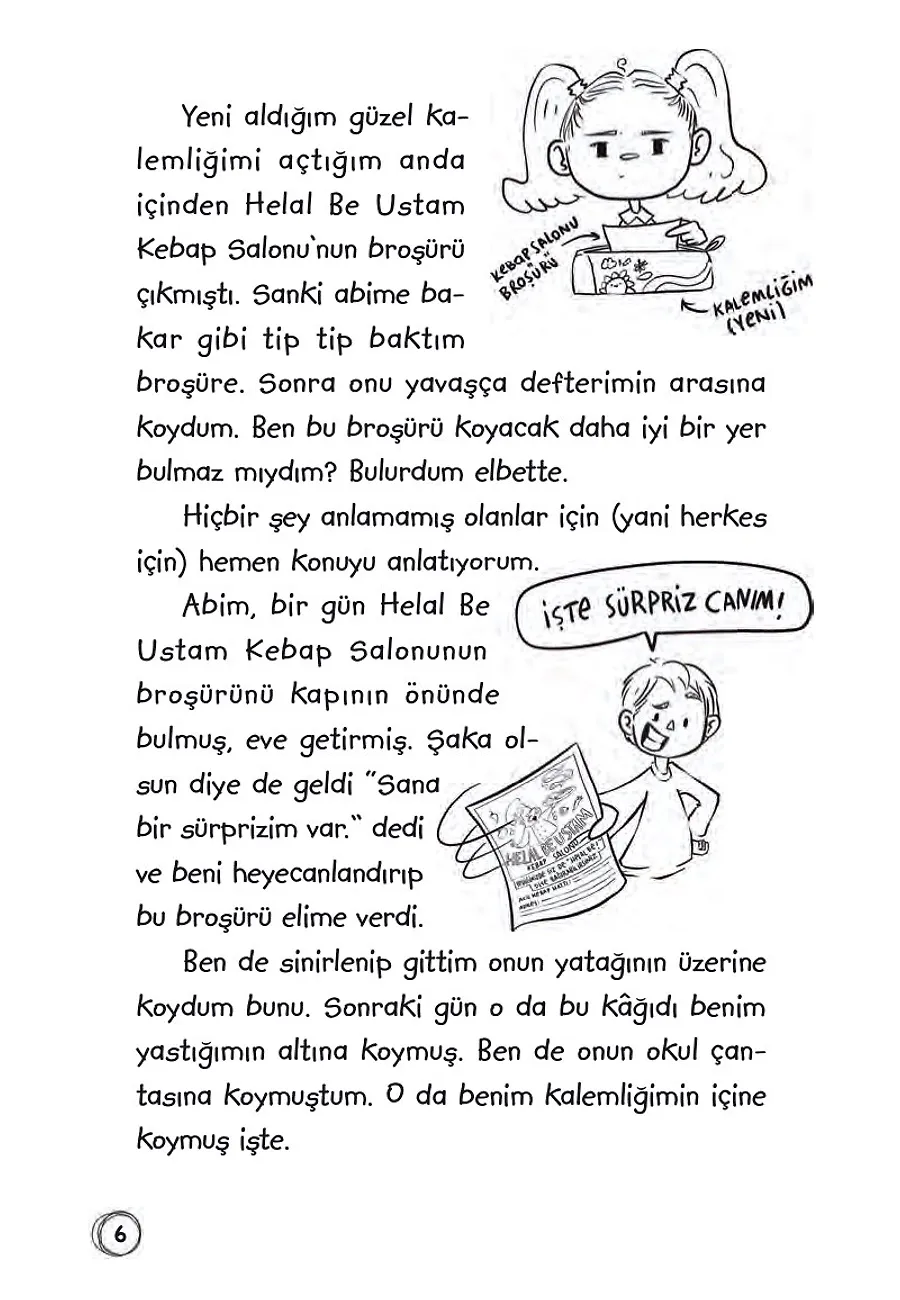 Yeni aldığım güzel ka-
lemliğimi açtığım anda
içinden Helal Be Ustam
Kebap Salonu'nun broşürü
çıkmıştı. Sanki abime ba-
kar gibi tip tip baktım
KEBAP SALONU
BROŞÜRÜ
KALEMLİĞİM
(YENİ)
broşüre. Sonra onu yavaşça defterimin arasına
koydum. Ben bu broşürü koyacak daha iyi bir yer
bulmaz mıydım? Bulurdum elbette.
Hiçbir şey anlamamış olanlar için (yani herkes
için) hemen konuyu anlatıyorum.
Abim, bir gün Helal Be
Ustam Kebap Salonunun
broşürünü kapının önünde
bulmuş, eve getirmiş. Şaka ol-
sun diye de geldi "Sana
bir sürprizim var." dedi
ve beni heyecanlandırıp
bu broşürü elime verdi.
İŞTE SÜRPRİZ CANIM!
HELAL BE USTAM
KEBAP SALONU
Ben de sinirlenip gittim onun yatağının üzerine
koydum bunu. Sonraki gün o da bu kâğıdı benim
yastığımın altına koymuş. Ben de onun okul çan-
tasına koymuştum. O da benim kalemliğimin içine
koymuş işte.
6